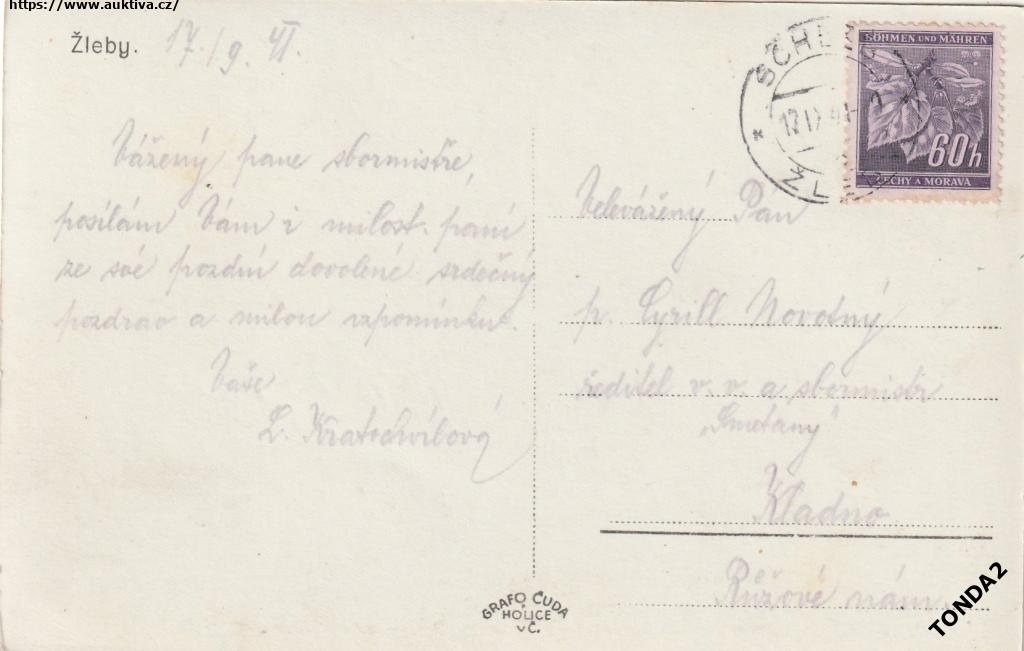 https://www.auktiva.cz/
Žleby. 17./9. 41.
Vážený pane sbormistře,
posílám Vám i milost. paní
ze své pozdní dovolené srdečný
pozdrav a milou vzpomínku.
Vaše
L. Kratochvílová
GRAFO ČUDA
HOLICE
v Č.
BÖHMEN UND MÄHREN
60h
ČECHY A MORAVA
Velevážený Pan
p. Cyrill Novotný
ředitel v. v. a sbormistr
„Smetany“
Kladno
Růžové nám.
TONDA2